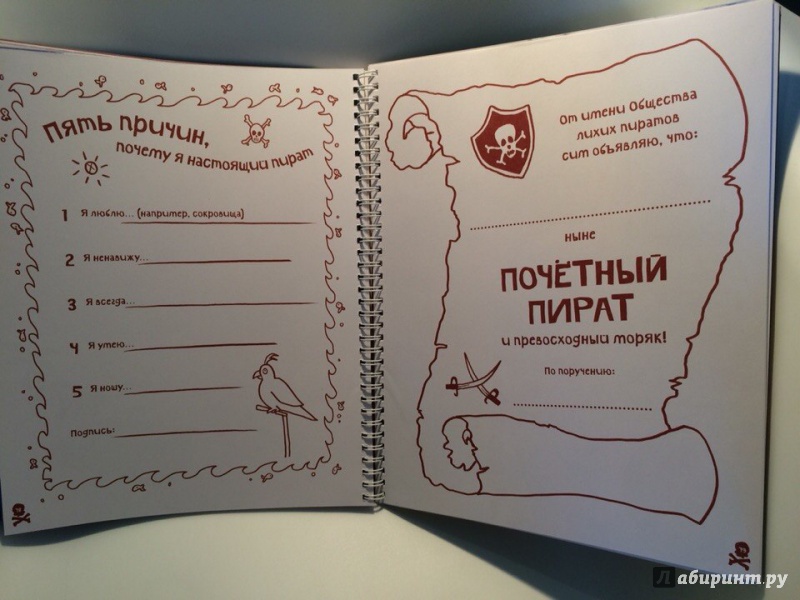 Пять причин,
почему я настоящий пират
1 Я люблю... (например, сокровища)
2 Я ненавижу...
3 Я всегда...
4 Я умею...
5 Я ношу...
Подпись:
От имени Общества
лихих пиратов
сим объявляю, что:
ныне
ПОЧЁТНЫЙ
ПИРАТ
и превосходный моряк!
По поручению:
Лабиринт.ру